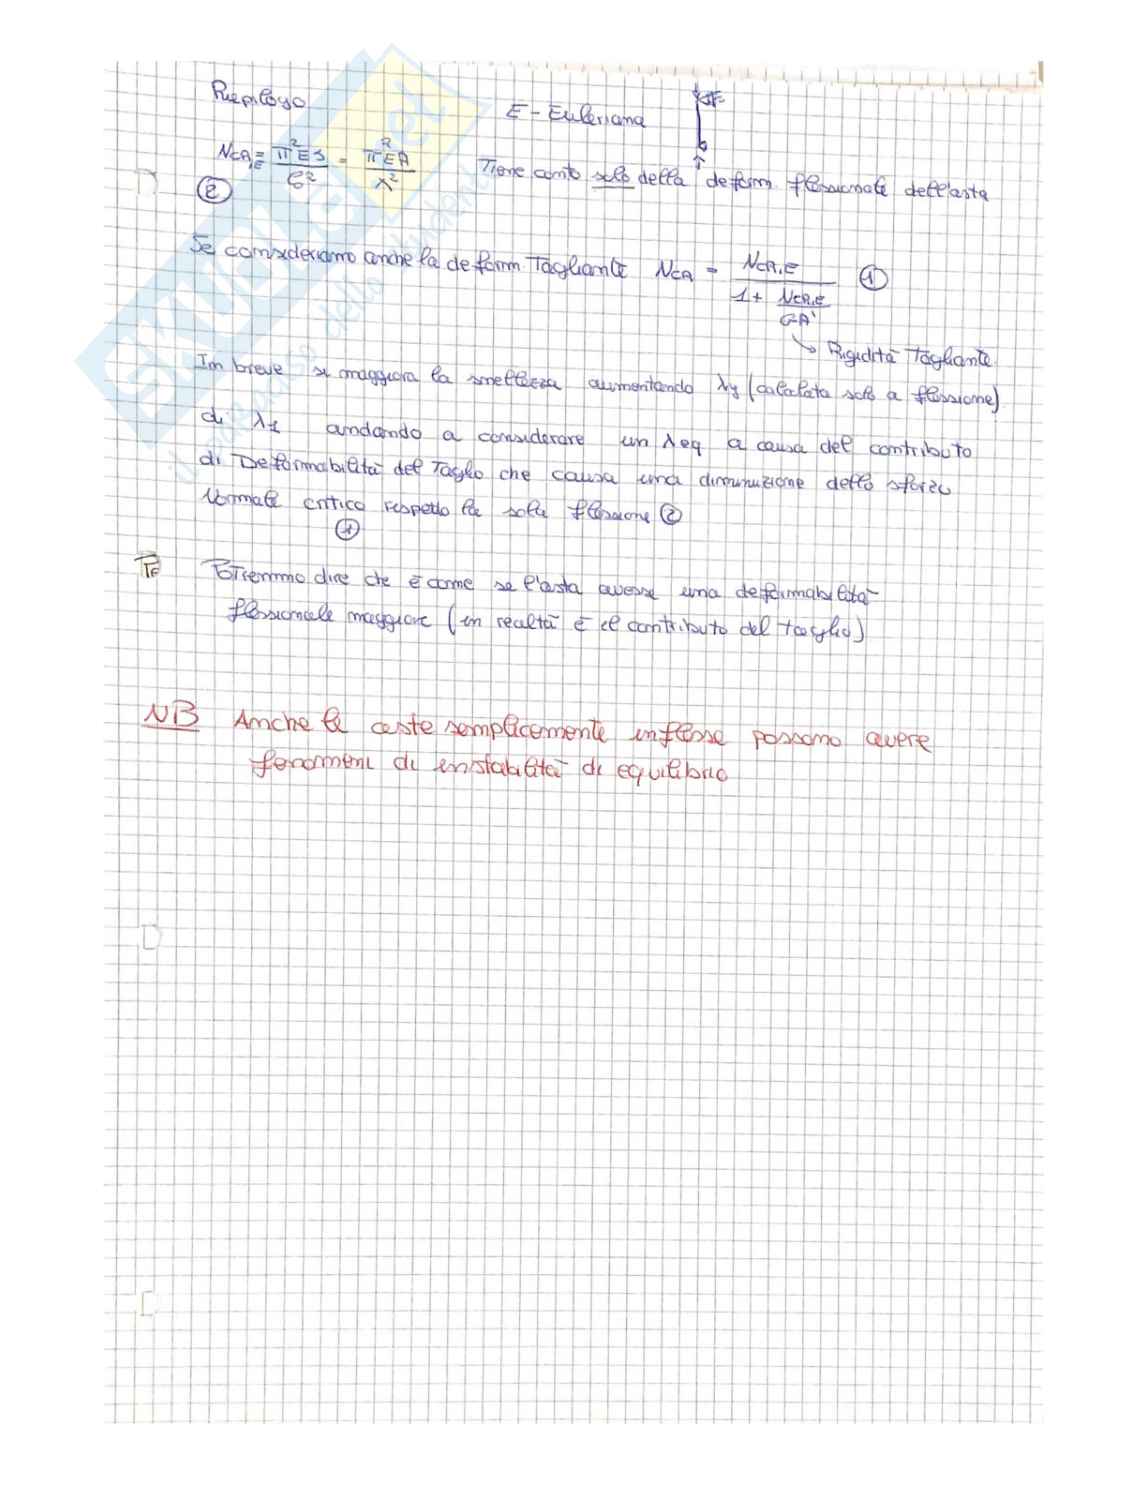 Riepilogo
E - Euleriana
N_CR,E = π²EJ / l² = π²EA / λ²
②
Tiene conto solo della deform. flessionale dell'asta
Se consideriamo anche la deform. Tagliante N_CR = N_CR,E / (1 + N_CR,E / GA') ①
↳ Rigidità Tagliante
In breve si maggiora la snellezza aumentando λy (calcolata solo a flessione)
di λ1 andando a considerare un λeq a causa del contributo
di Deformabilità del Taglio che causa una diminuzione dello sforzo
Normale critico rispetto la sola flessione ②
①
Potremmo dire che è come se l'asta avesse una deformabilità
flessionale maggiore (in realtà è il contributo del taglio)
NB Anche le aste semplicemente inflesse possono avere
fenomeni di instabilità di equilibrio
SKUOLA.net
il paradiso dello studente